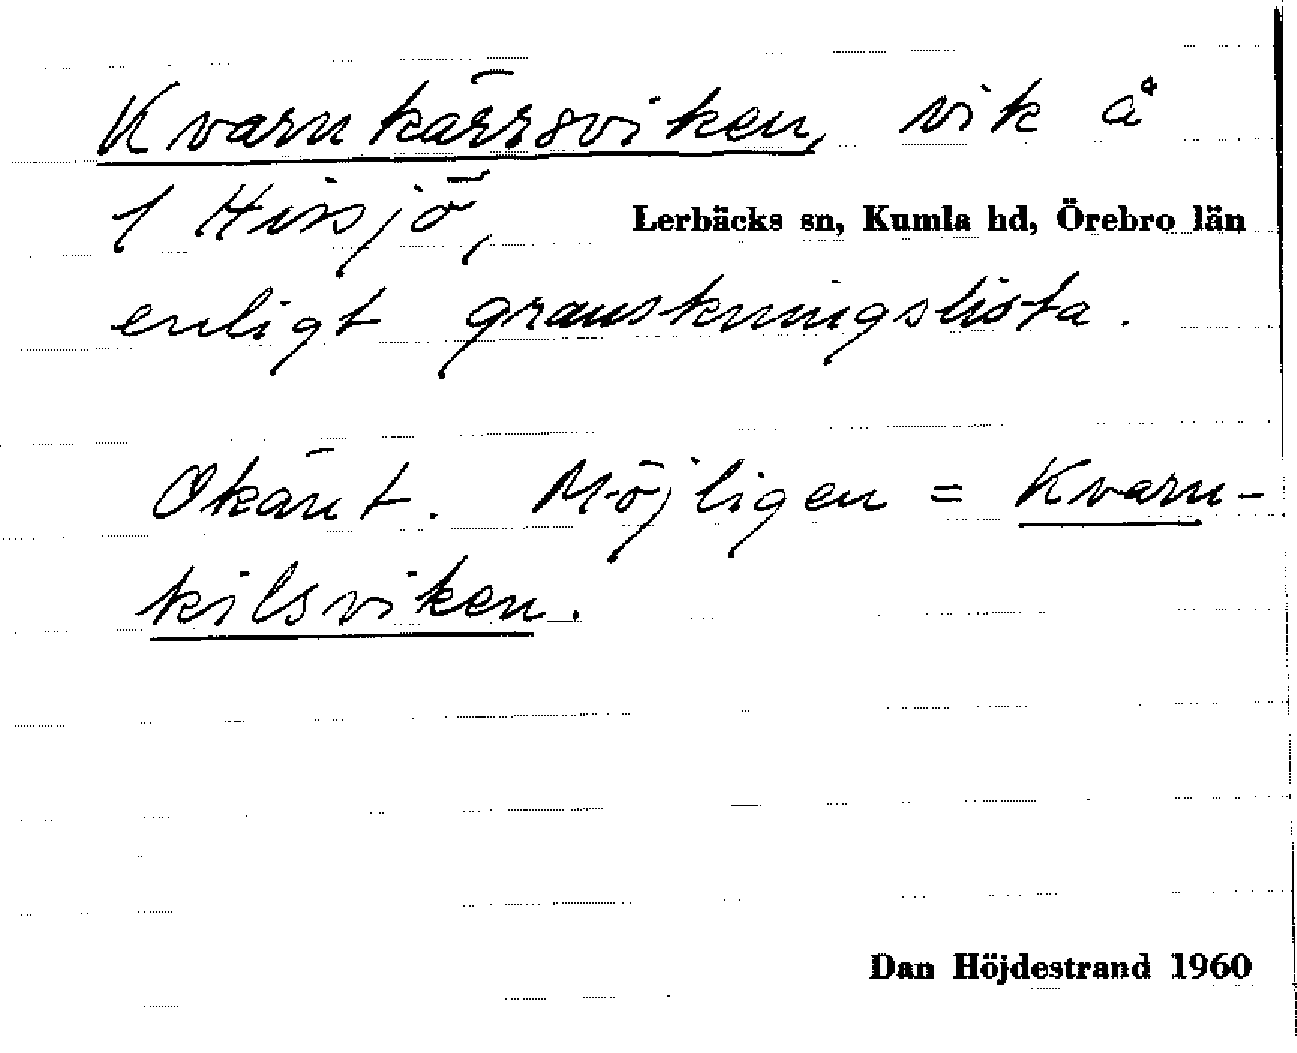 Kvarnkärrsviken, vik å
1 Hissjö, Lerbäcks sn, Kumla hd, Örebro län
enligt granskningslista.
Okänt. Möjligen = Kvarn-
kilsviken.
Dan Höjdestrand 1960